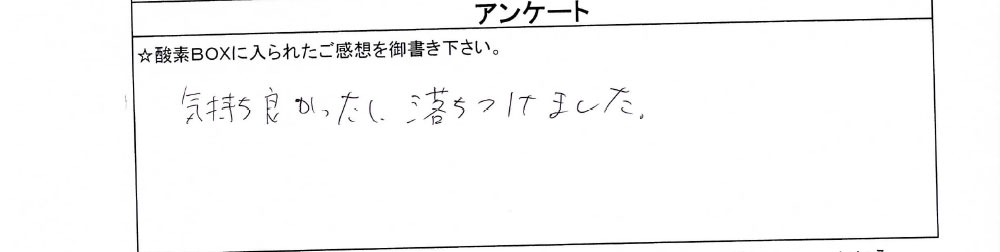 アンケート
☆酸素BOXに入られたご感想を御書き下さい。
気持ち良かったし、落ちつけました。